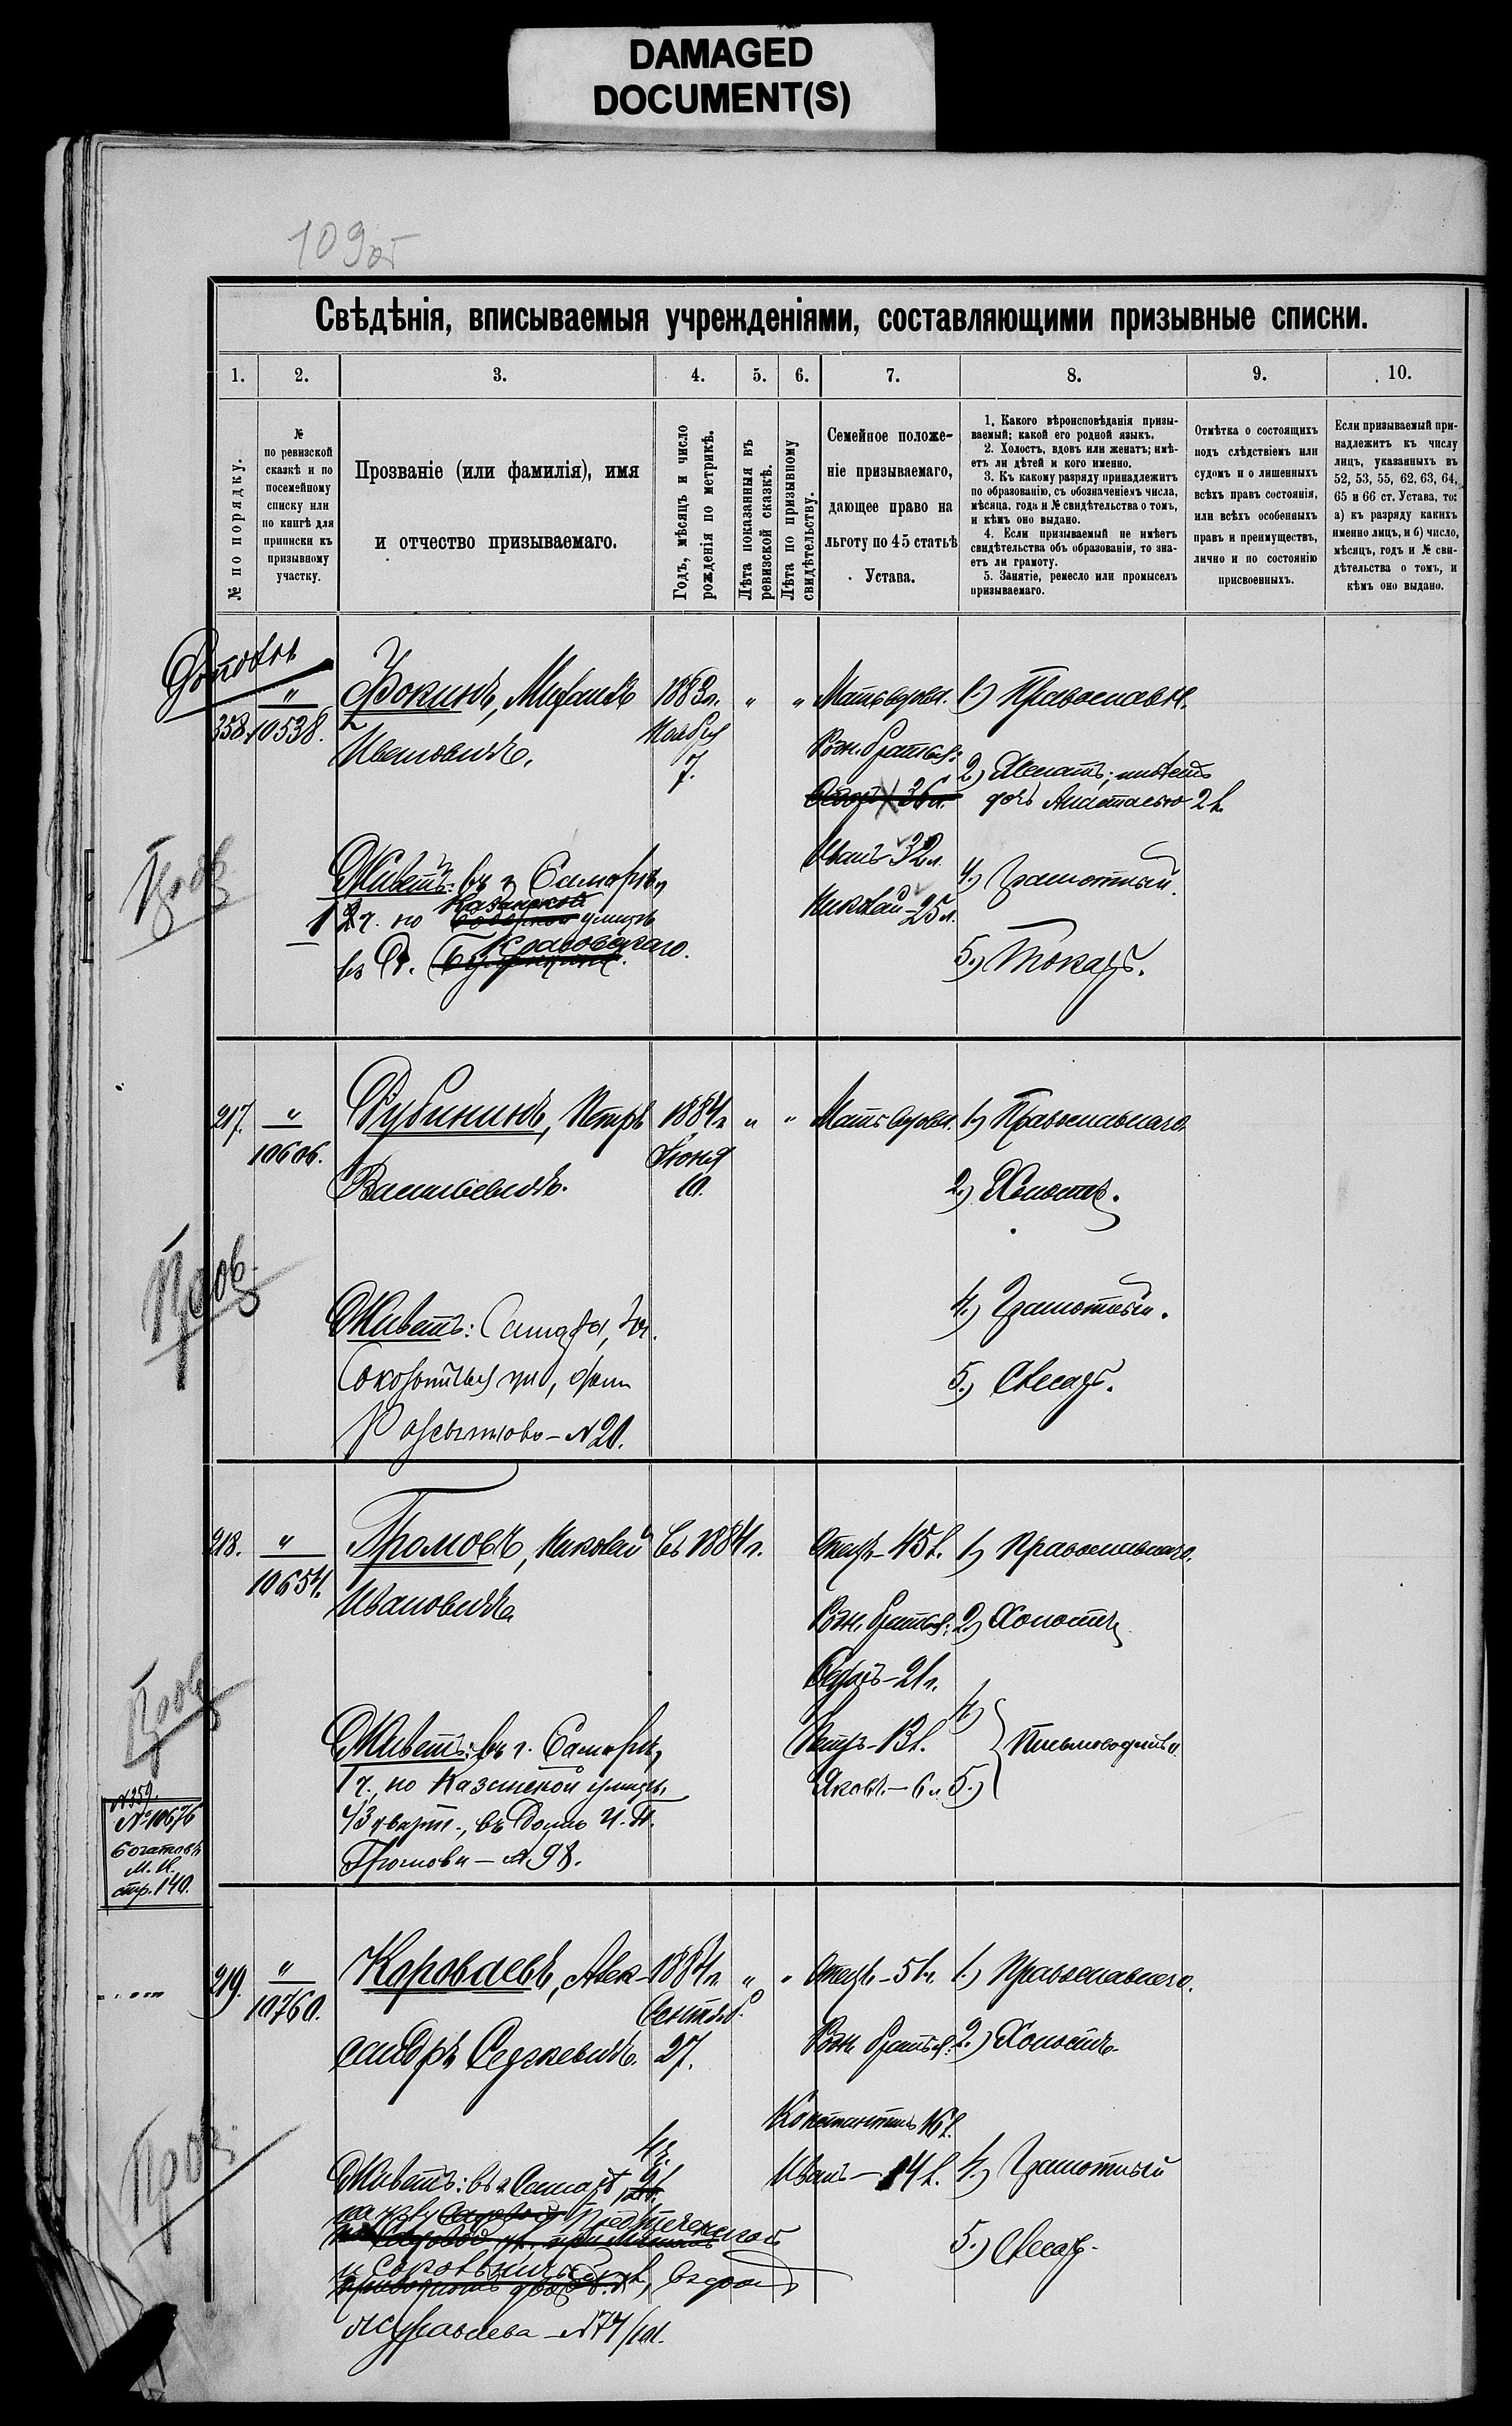 DAMAGED
DOCUMENT(S)
109 об
Свѣдѣнія, вписываемыя учрежденіями, составляющими призывные списки.
1. 2. 3. 4. 5. 6. 7. 8. 9. 10.
№ по порядку.
№
по ревизской
сказкѣ и по
посемейному
списку или
по книгѣ для
приписки къ
призывному
участку.
Прозваніе (или фамилія), имя
и отчество призываемаго.
Годъ, мѣсяцъ и число
рожденія по метрикѣ.
Лѣта показанныя въ
ревизской сказкѣ.
Лѣта по призывному
свидѣтельству.
Семейное положе-
ніе призываемаго,
дающее право на
льготу по 45 статьѣ
Устава.
1. Какого вѣроисповѣданія призы-
ваемый; какой его родной языкъ.
2. Холостъ, вдовъ или женатъ; имѣ-
етъ ли дѣтей и кого именно.
3. Къ какому разряду принадлежитъ
по образованію, съ обозначеніемъ числа,
мѣсяца, года и № свидѣтельства о томъ,
и кѣмъ оно выдано.
4. Если призываемый не имѣетъ
свидѣтельства объ образованіи, то зна-
етъ ли грамоту.
5. Занятіе, ремесло или промыселъ
призываемаго.
Отмѣтка о состоящихъ
подъ слѣдствіемъ или
судомъ и о лишенныхъ
всѣхъ правъ состоянія,
или всѣхъ особенныхъ
правъ и преимуществъ,
лично и по состоянію
присвоенныхъ.
Если призываемый при-
надлежитъ къ числу
лицъ, указанныхъ въ
52, 53, 55, 62, 63, 64,
65 и 66 ст. Устава, то:
а) къ разряду какихъ
именно лицъ, и б) число,
мѣсяцъ, годъ и № сви-
дѣтельства о томъ, и
кѣмъ оно выдано.
358. " 10538.
Фокинъ, Михаилъ
Ивановичъ.
1883 г.
Ноября
7.
" "
Мать вдова.
Родн. братья:
36 л.
Иванъ 32 л.
Николай - 25 л.
1.) Православн.
2.) Женатъ; имѣетъ
дочь Анастасью 2 л.
4.) Грамотный.
5.) Токарь.
Пров
Живетъ: въ г. Самарѣ,
1 2 ч. по Казанской улицѣ
въ д.
217. " 10606.
Дубининъ, Петръ
Васильевичъ.
1884 г.
Іюня
10.
" "
Мать вдова.
1.) Православнаго.
2.) Холостъ.
4.) Грамотный.
5.) Слесарь.
Пров.
Живетъ: Самара,
№ 20.
218. " 10654.
Громовъ, Николай
Ивановичъ
въ 1884 г.
Отецъ - 45 л.
Родн. братья:
21 л.
Петръ - 13 л.
Яковъ - 6 л.
1.) Православнаго.
2.) Холостъ
4.)
5.)
Письмоводитель
Пров
Живетъ: въ г. Самарѣ,
1 ч., по Казанской улицѣ,
43 кварт., въ домѣ И. П.
Громова - № 98.
№ 359.
№ 10676
Богатовъ
М. И.
стр. 140.
219. " 10760.
Короваевъ, Алек-
сандръ Сергѣевичъ.
1884 г.
Сентяб.
27.
" "
Отецъ - 51 г.
Родн. братья:
Константинъ 16 л.
Иванъ - 14 л.
1.) Православнаго.
2.) Холостъ.
4.) Грамотный
5.) Слесарь.
Пров.
Живетъ: въ г. Самарѣ
Журавлева - № 74/101.